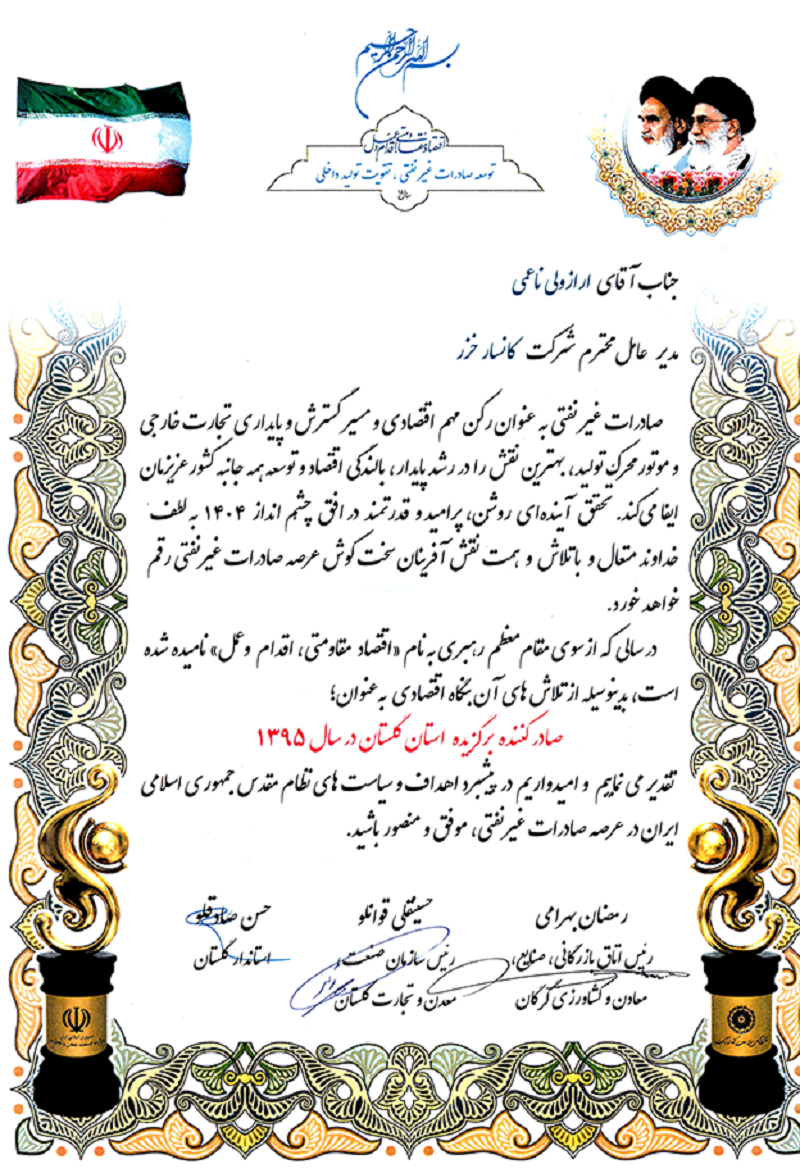 بسم الله الرحمن الرحیم
اقتصاد مقاومتی، اقدام و عمل
توسعه صادرات غیر نفتی، تقویت تولید داخلی
جناب آقای ارازولی ناعمی
مدیر عامل محترم شرکت کانسار خزر
صادرات غیر نفتی به عنوان رکن مهم اقتصادی و مسیر گسترش و پایداری تجارت خارجی
و موتور محرک تولید، بهترین نقش را در رشد پایدار، بالندگی اقتصاد و توسعه همه جانبه کشور عزیزمان
ایفا می‌کند. تحقق آینده‌ای روشن، پرامید و قدرتمند در افق چشم انداز ۱۴۰۴ به لطف
خداوند متعال و با تلاش و همت نقش آفرینان سخت کوش عرصه صادرات غیرنفتی رقم
خواهد خورد.
در سالی که از سوی مقام معظم رهبری به نام «اقتصاد مقاومتی، اقدام و عمل» نامیده شده
است، بدینوسیله از تلاش های آن بنگاه اقتصادی به عنوان؛
صادر کننده برگزیده استان گلستان در سال ۱۳۹۵
تقدیر می نماییم و امیدواریم در پیشبرد اهداف و سیاست های نظام مقدس جمهوری اسلامی
ایران در عرصه صادرات غیرنفتی، موفق و منصور باشید.
رمضان بهرامی
رئیس اتاق بازرگانی، صنایع،
معادن و کشاورزی گرگان
حسینقلی قوانلو
رئیس سازمان صنعت،
معدن و تجارت گلستان
حسن صادقلو
استاندار گلستان